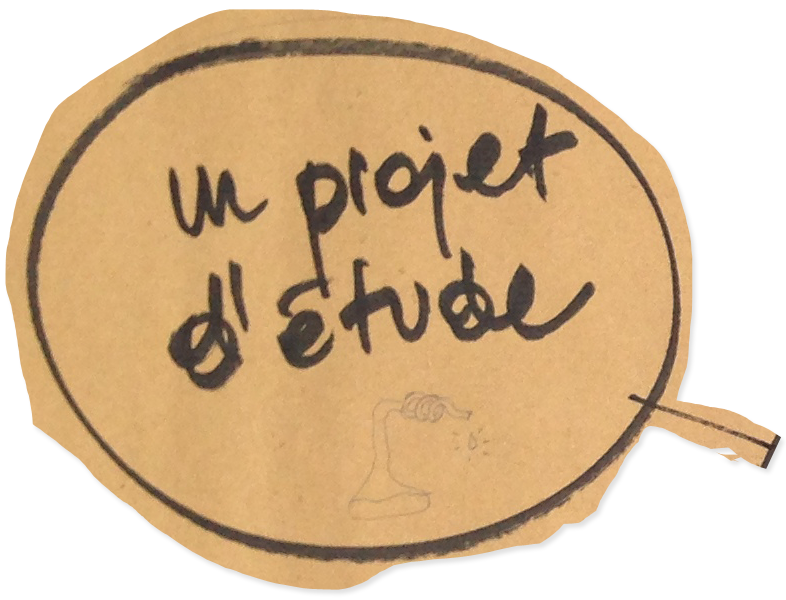 un projet
d'étude